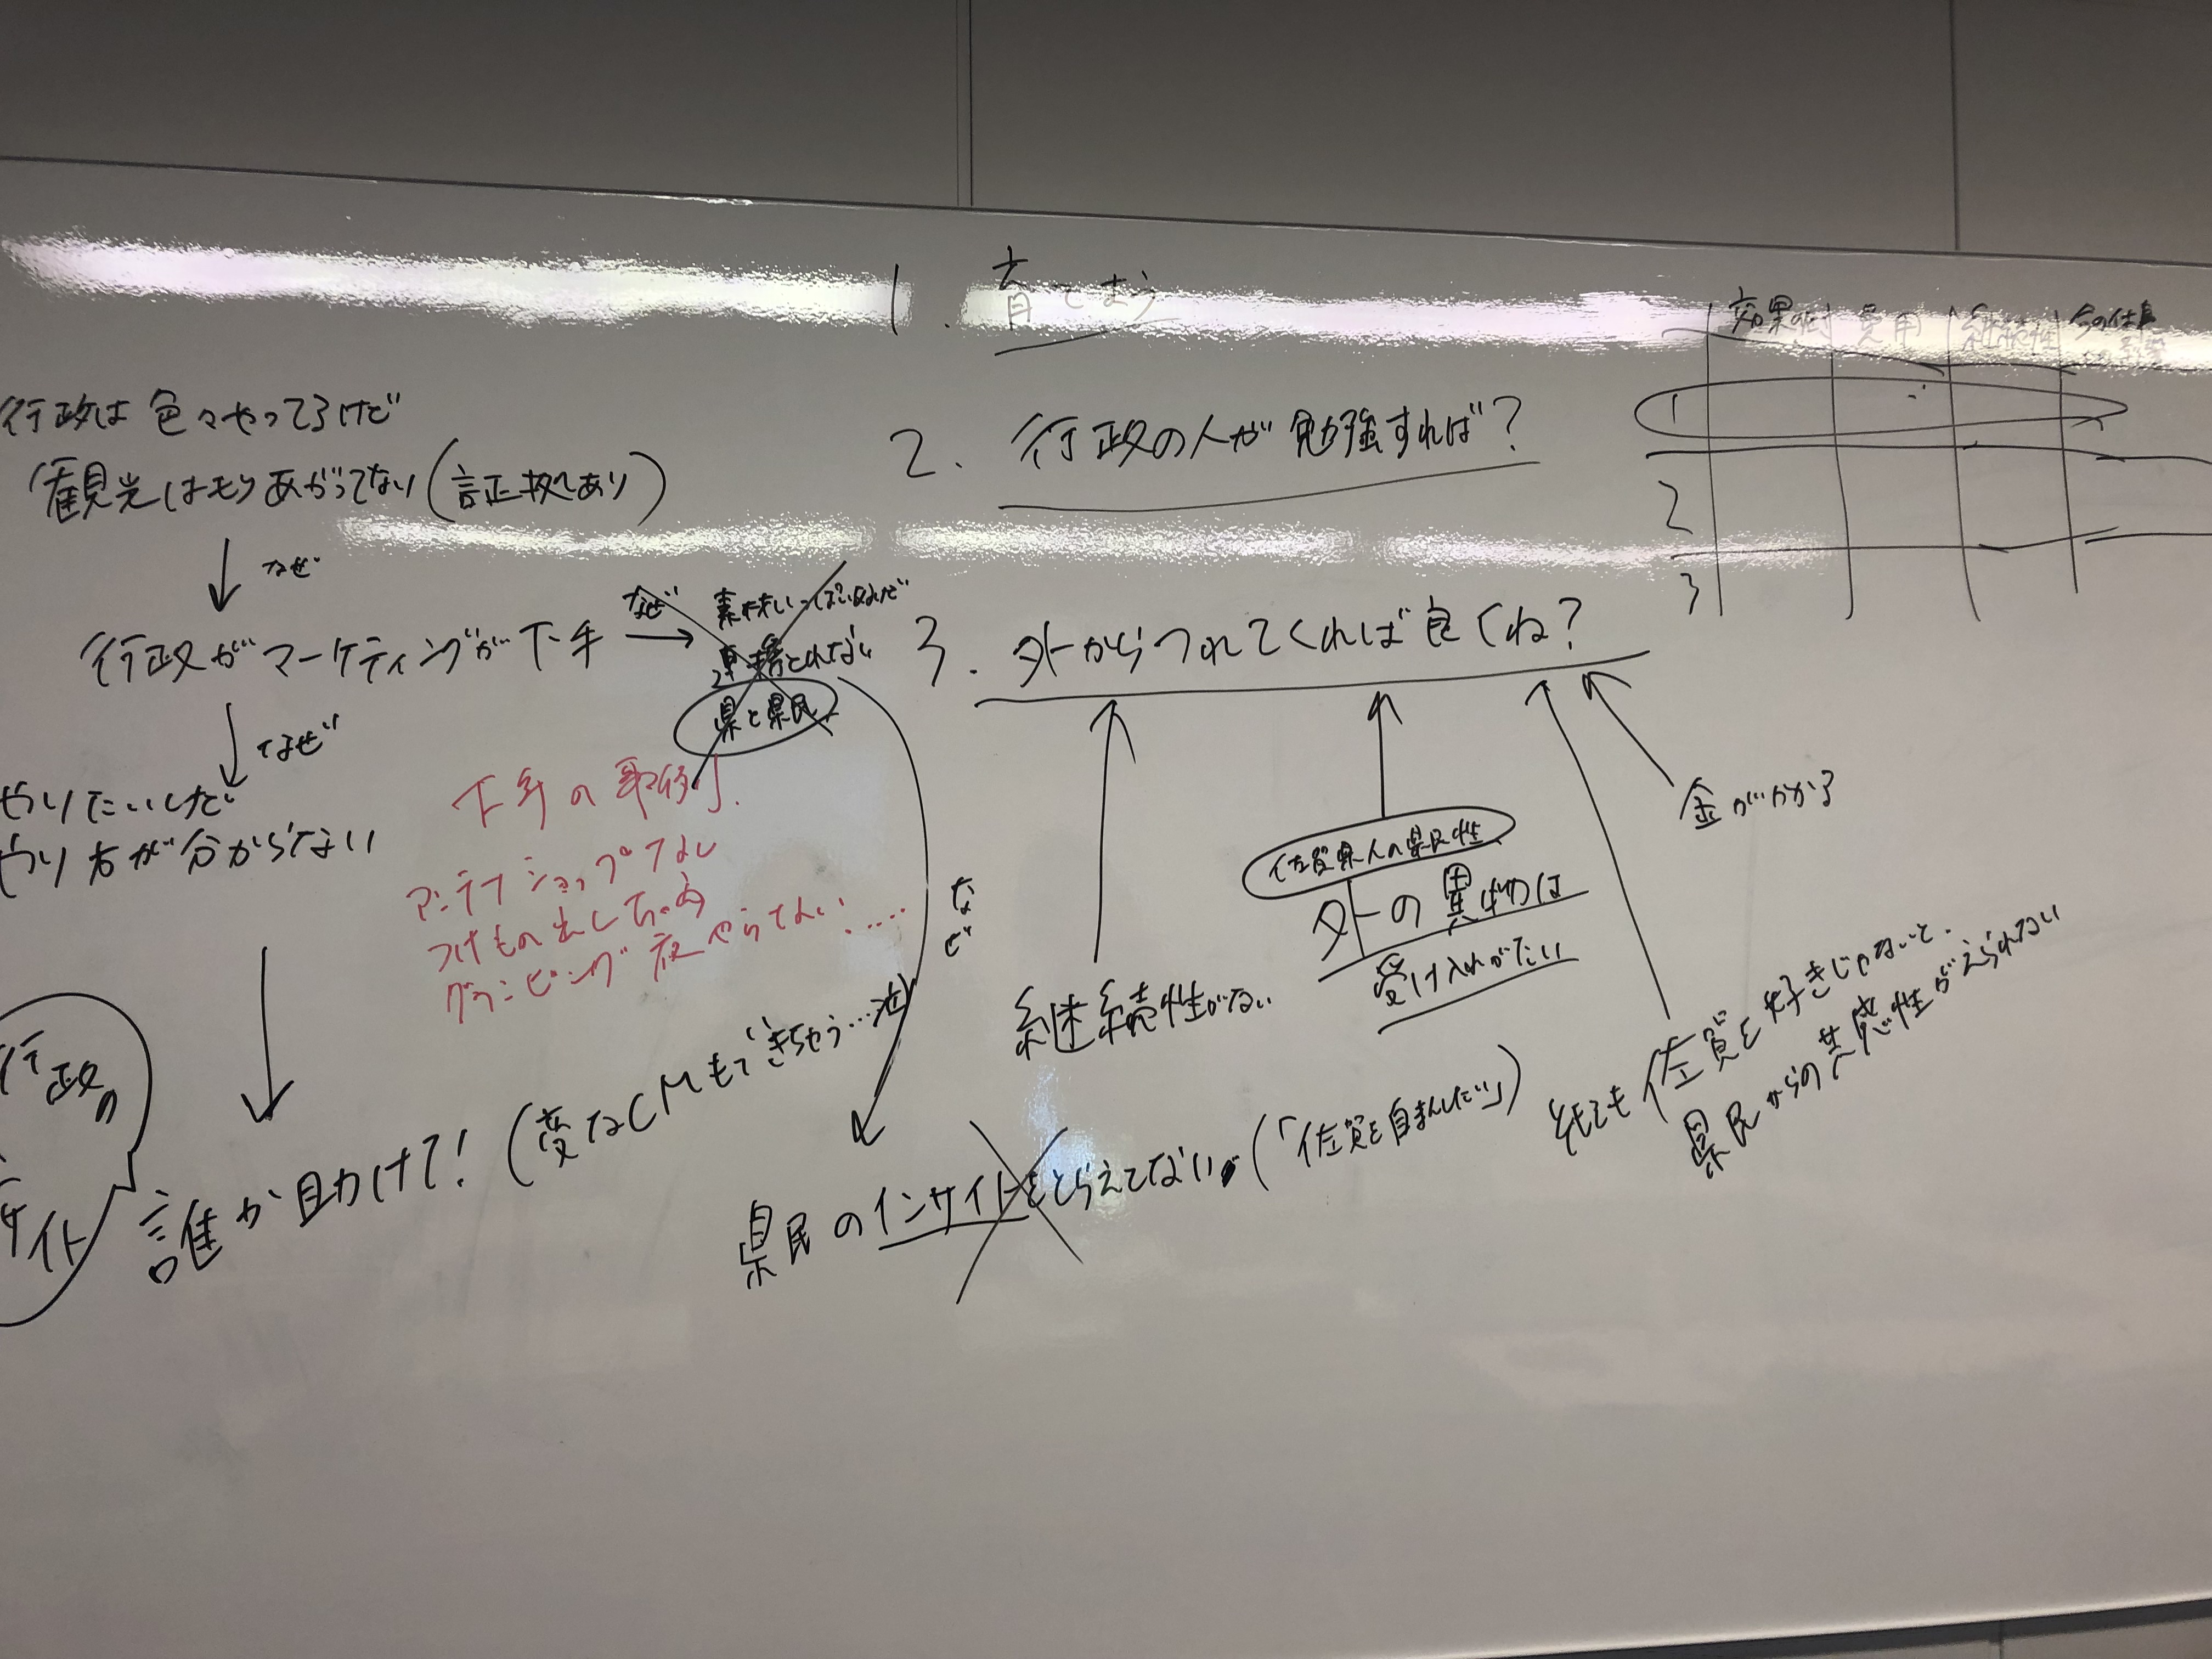 行政は色々やってるけど
観光はもりあがってない(証拠あり)
なぜ
行政がマーケティングが下手
なぜ
素材いっぱいあるけど
連携とれない
県と県民
なぜ
やりたいけど
やり方が分からない
下手の
アンテナショップなし
つけもの出しちゃう
グランピング夜やらない.....
行政の
サイト
誰か助けて!(変なCMもできちゃう…泣)
なぜ
県民のインサイトをとらえてない(「佐賀を自まんしたい」)
1. 育てよう
2. 行政の人が勉強すれば?
3. 外からつれてくれば良くね?
継続性がない
佐賀県人の県民性
外の異物は
受け入れがたい
佐賀を好きじゃないと、
県民からの共感性がえられない
金がかかる
費用 継続性
1
2
3